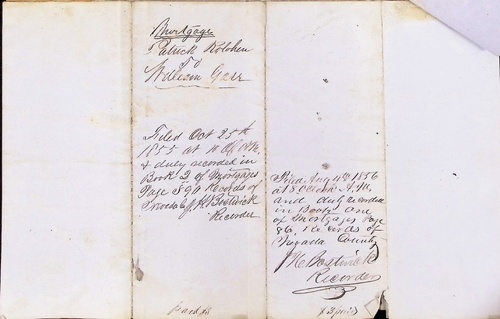 Mortgage
Patrick Kolohen
To
William Geer
Filed Oct 25th
1855 at 10 O.C. A.M.
& duly recorded in
Book 2 of Mortgages
Page 890 Records of
Bostwick
Recorder
Filed Aug 4th 1856
at 8 O'Clock A.M.
and duly Recorded
in Book one
of Mortgages Page
86, Records of
Nevada County
Bostwick
Recorder